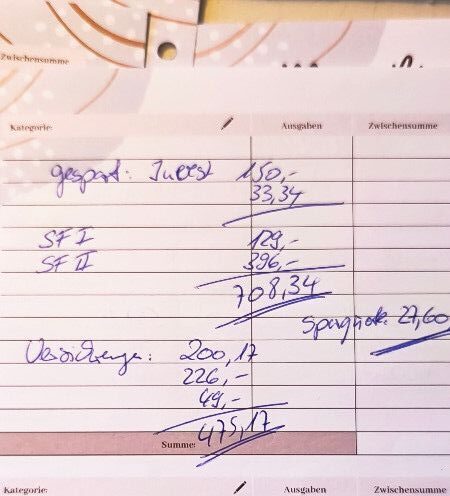 Zwischensumme
Kategorie: Ausgaben Zwischensumme
gespart: Invest 150,-
33,34
SF I 129,-
SF II 396,-
708,34
Sparquote: 27,60
Versicherungen: 200,17
226,-
49,-
Summe: 475,17
Kategorie: Ausgaben Zwischensumme